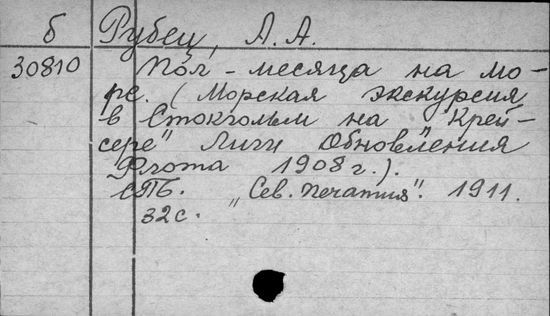 б Рубец, А. А.
30810 Пол-месяца на мо-
ре. (Морская экскурсия
в Стокгольм на "Крей-
сере" Лиги Обновления
Флота 1908 г.).
СПБ. „Сев. печатня". 1911.
32 с.